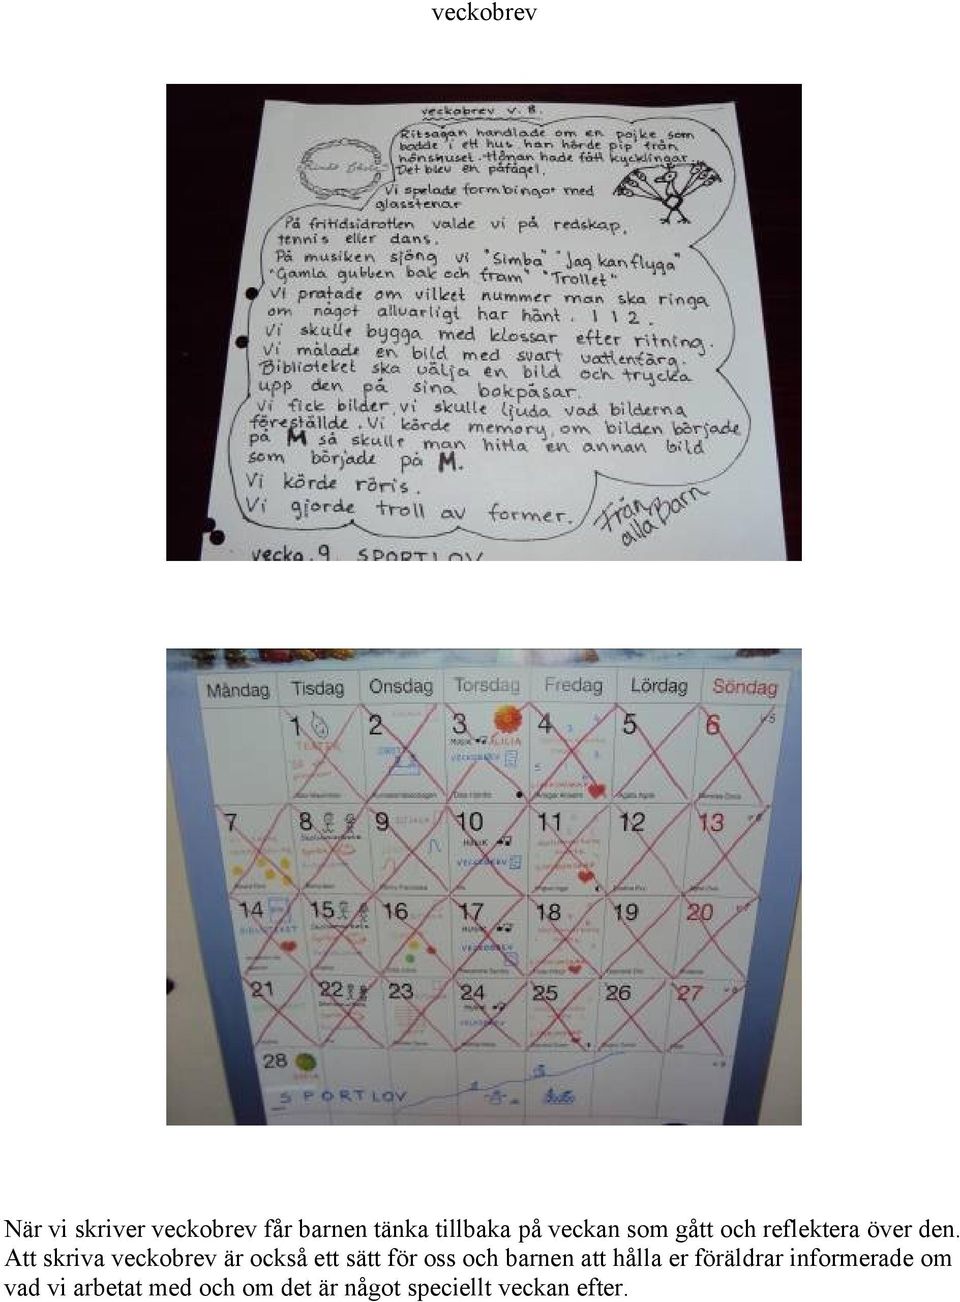 veckobrev
veckobrev v. 8.
Ritsagan handlade om en pojke som
bodde i ett hus han hörde pip från
hönshuset. Hönan hade fått kycklingar.
Det blev en påfågel.
Vi spelade formbingot med
glasstenar
På fritidsidrotten valde vi på redskap,
tennis eller dans.
På musiken sjöng vi "Simba" "Jag kan flyga"
"Gamla gubben bak och fram" "Trollet"
Vi pratade om vilket nummer man ska ringa
om något allvarligt har hänt. 112.
Vi skulle bygga med klossar efter ritning.
Vi målade en bild med svart vattenfärg.
Biblioteket ska välja en bild och trycka
upp den på sina bokpåsar.
Vi fick bilder, vi skulle ljuda vad bilderna
föreställde. Vi körde memory, om bilden började
på M så skulle man hitta en annan bild
som började på M.
Vi körde röris.
Vi gjorde troll av former.
Från
alla Barn
vecka. 9. SPORTLOV
Måndag Tisdag Onsdag Torsdag Fredag Lördag Söndag
1 2 3 4 5 6 v.5
TEATER
MUSIK
VECKOBREV
7 8 9 10 11 12 13
MUSIK
VECKOBREV
14 15 16 17 18 19 20
BIBLIOTEKET
MUSIK
VECKOBREV
21 22 23 24 25 26 27
MUSIK
VECKOBREV
28
SPORTLOV
När vi skriver veckobrev får barnen tänka tillbaka på veckan som gått och reflektera över den.
Att skriva veckobrev är också ett sätt för oss och barnen att hålla er föräldrar informerade om
vad vi arbetat med och om det är något speciellt veckan efter.